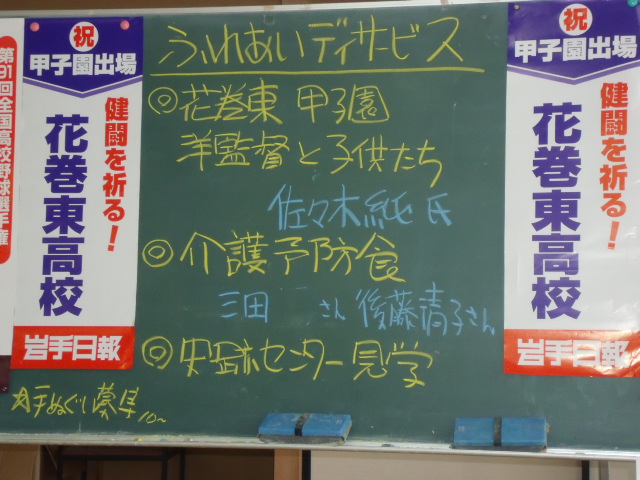 第91回全国高校野球選手権
祝
甲子園出場
健闘を祈る！
花巻東高校
岩手日報
ふれあいデイサービス
◎花巻東 甲子園
洋監督と子供たち
佐々木純氏
◎介護予防食
三田 さん 後藤清子さん
◎史跡センター見学
手ぬぐい募集
10～
祝
甲子園出場
健闘を祈る！
花巻東高校
岩手日報